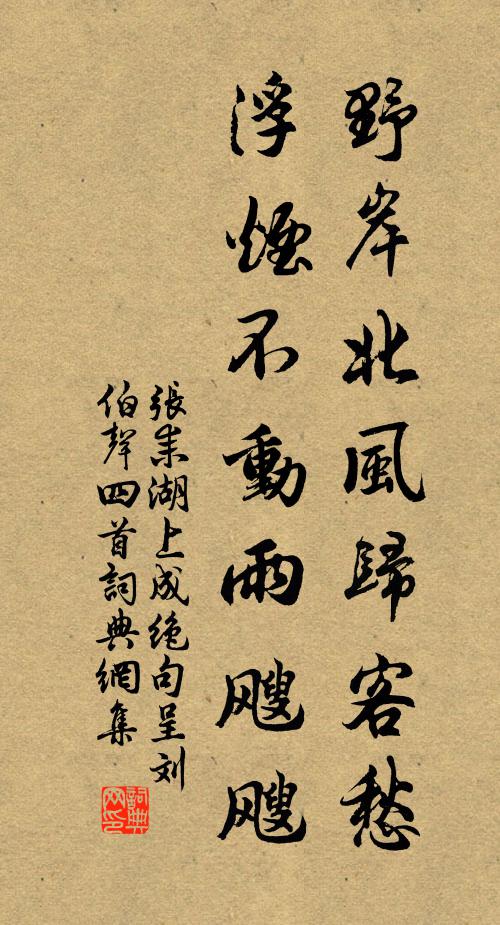 野岸北風歸客愁
浮煙不動雨颼颼
張耒湖上成絕句呈刘
伯聲四首詞典網集
詞典
网印